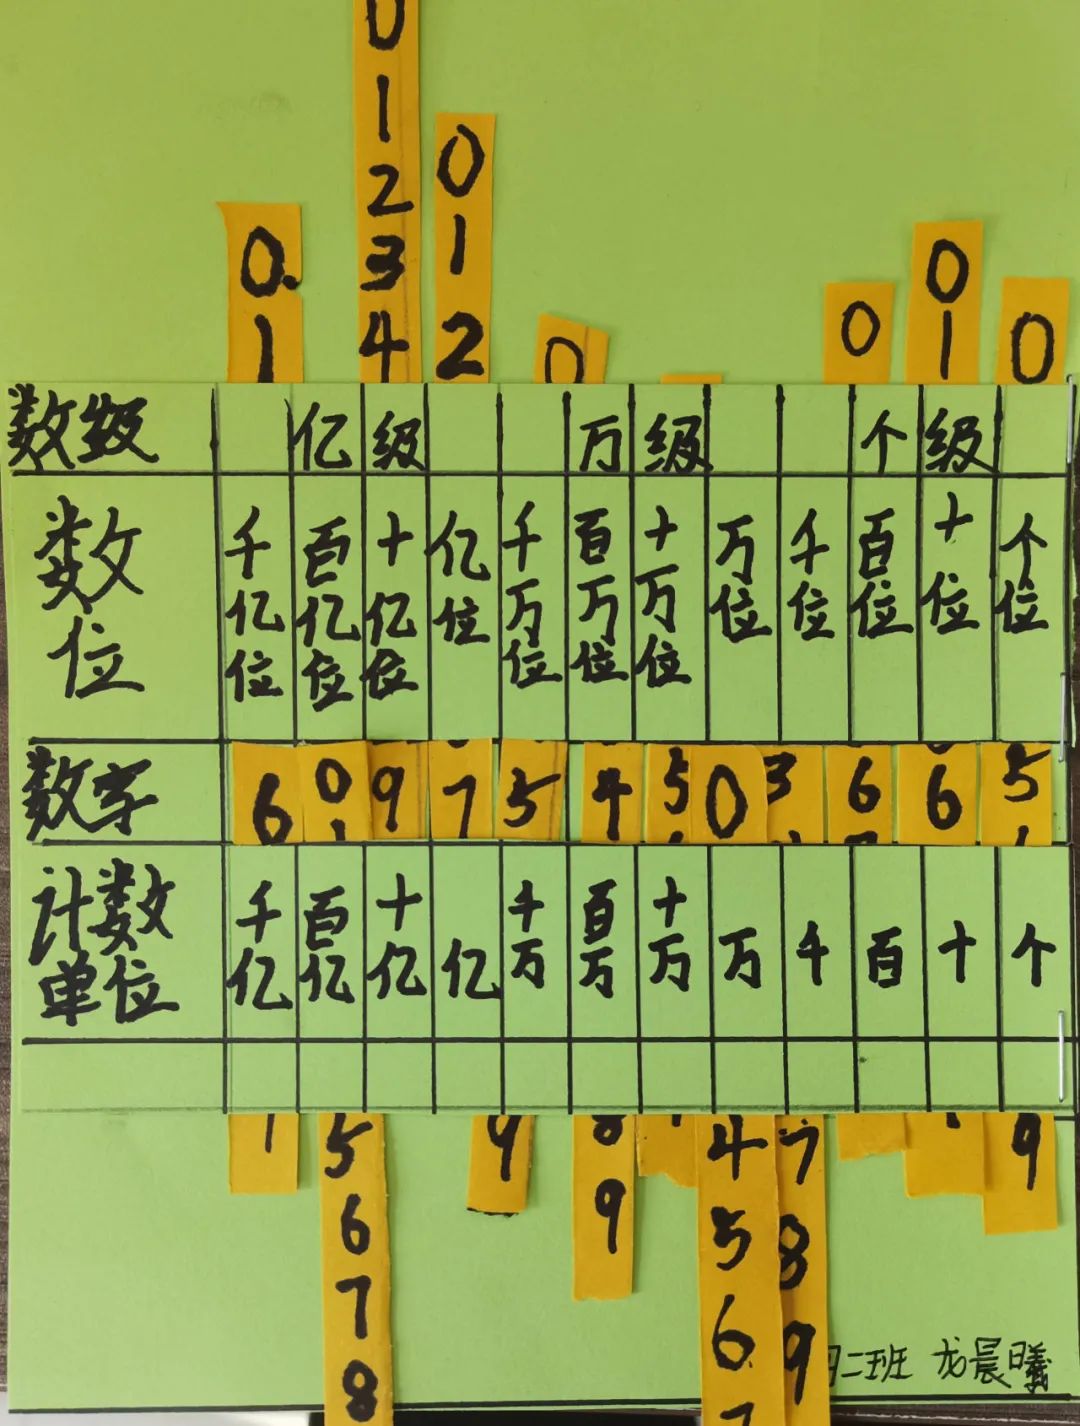 0
1
2
3
4
0
1
2
0.
1
0
0
0
1
0
数级 亿级 万级 个级
数位 千亿位 百亿位 十亿位 亿位 千万位 百万位 十万位 万位 千位 百位 十位 个位
数字 6 0 9 7 5 4 5 0 3 6 6 5
计数单位 千亿 百亿 十亿 亿 千万 百万 十万 万 千 百 十 个
5
6
7
8
9
8
9
4
5
6
7
7
8
9
9
二班 龙晨曦